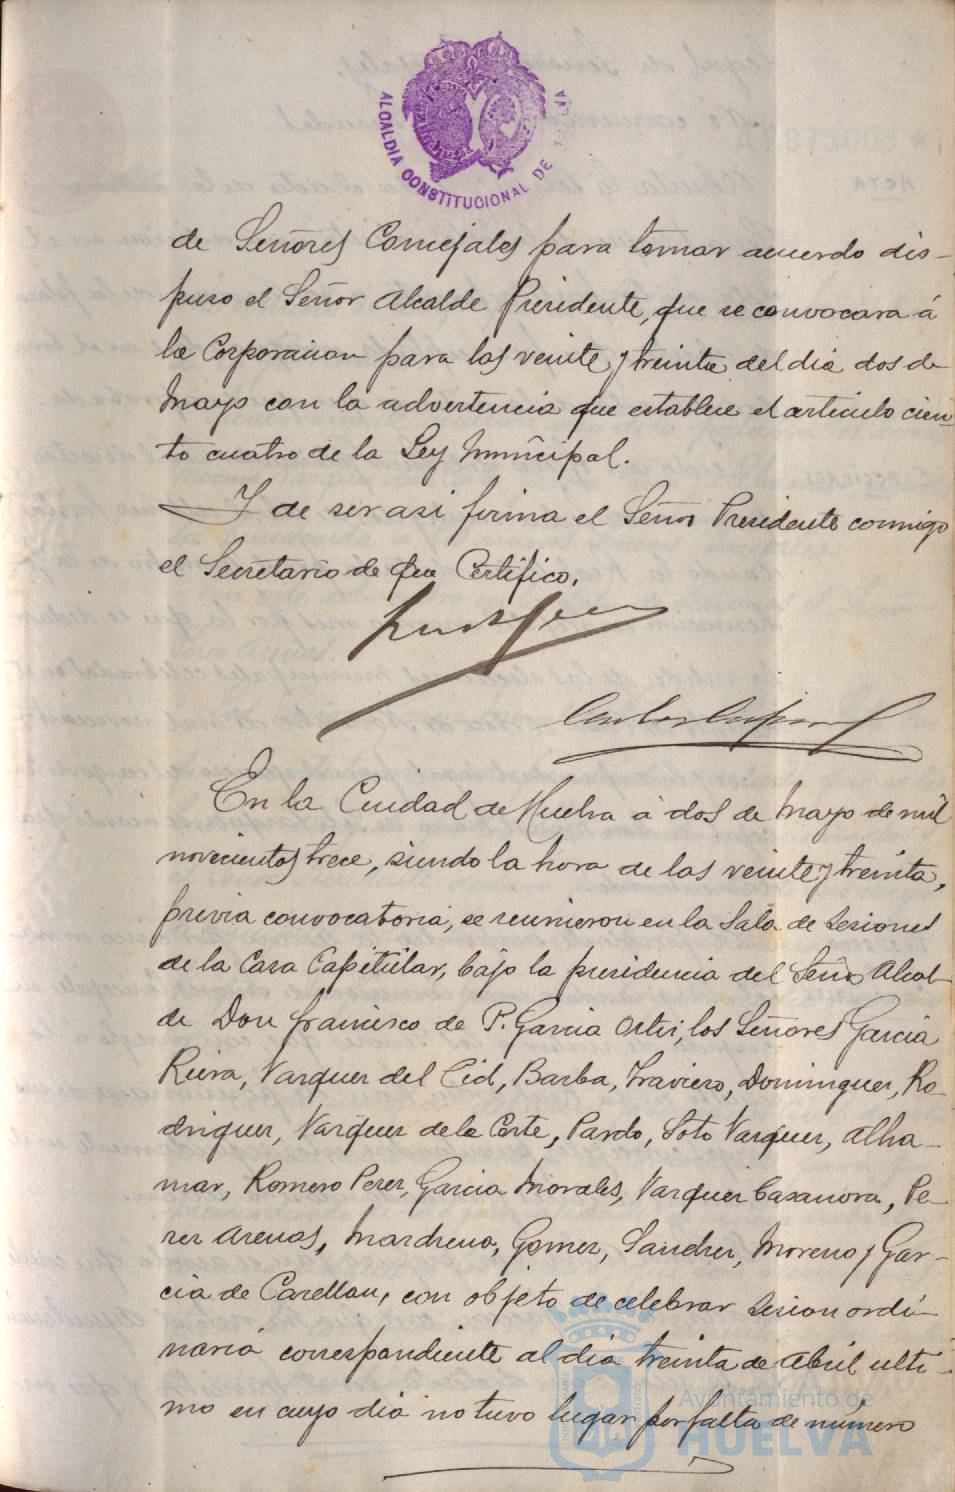 ALCALDIA CONSTITUCIONAL DE
de Señores Concejales para tomar acuerdo dis-
puso el Señor Alcalde Presidente, que se convocara á
la Corporacion para las veinte y treinta del dia dos de
Mayo con la advertencia que establece el articulo cien-
to cuatro de la Ley Municipal.
Y de ser asi firma el Señor Presidente conmigo
el Secretario de que Certifico.
En la Ciudad de Huelva á dos de Mayo de mil
novecientos trece, siendo la hora de las veinte y treinta,
previa convocatoria, se reunieron en la Sala de Sesiones
de la Casa Capitular, bajo la presidencia del Señor Alcal-
de Don Francisco de P. Garcia Ortiz, los Señores Garcia
Riera, Vazquez del Cid, Barba, Traviero, Dominguez, Ro-
driguez, Vazquez de la Corte, Pardo, Soto Vazquez, Alha-
mar, Romero Perez, Garcia Morales, Vazquez Casanova, Pe-
rez Arenas, Mardreno, Gomez, Sanchez, Moreno y Gar-
cia de Carellan, con objeto de celebrar sesion ordi-
naria correspondiente al dia treinta de Abril ulti-
mo en cuyo dia no tuvo lugar por falta de número
Ayuntamiento de
HUELVA